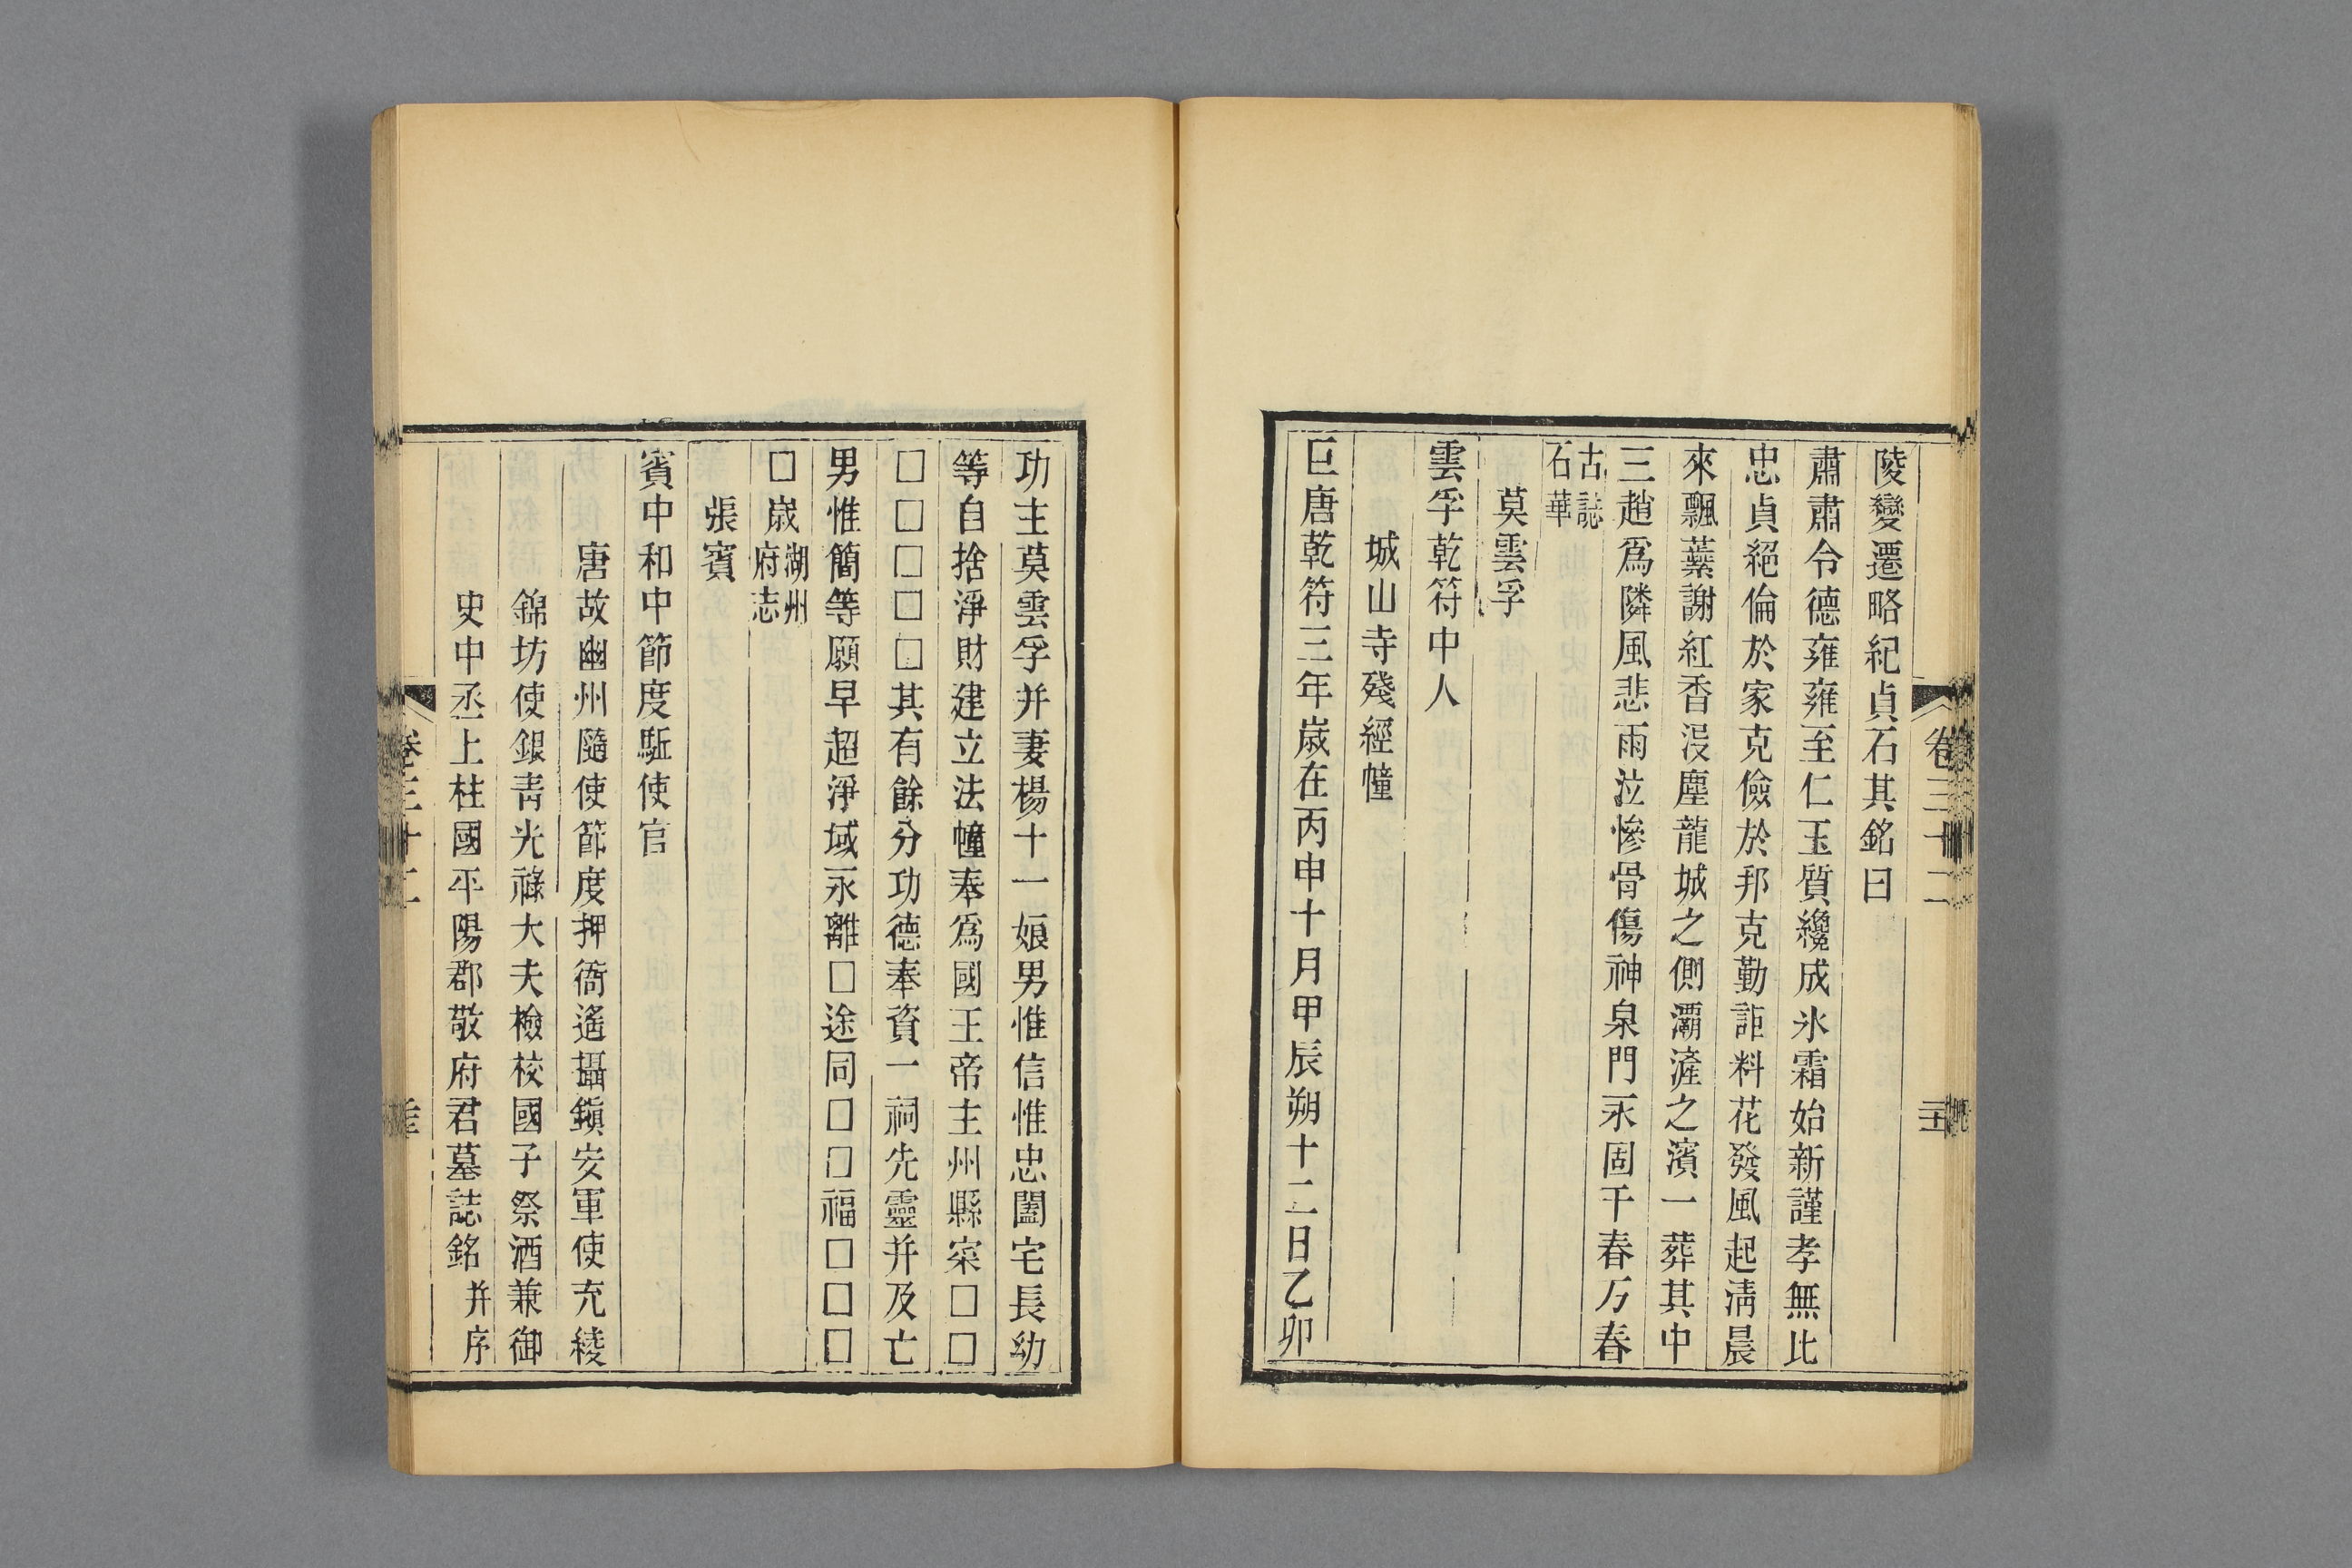 陵變遷略紀貞石其銘曰
肅肅令德雍雍至仁玉質纔成氷霜始新謹孝無比
忠貞絕倫於家克儉於邦克勤詎料花發風起淸晨
來飄蘂謝紅香沒塵龍城之側灞滻之濱一葬其中
三趙爲隣風悲雨泣慘骨傷神泉門永固千春万春
古誌
石華
莫雲孚
雲孚乾符中人
城山寺殘經幢
巨唐乾符三年歲在丙申十月甲辰朔十二日乙卯
卷三十二
功主莫雲孚并妻楊十一娘男惟信惟忠闔宅長幼
等自捨淨財建立法幢奉爲國王帝主州縣寀□□
□□□□□其有餘分功德奉資一祠先靈并及亡
男惟簡等願早超淨域永離□途同□□福□□□
□歲湖州
府志
張賓
賓中和中節度駈使官
唐故幽州隨使節度押衙遙攝鎭安軍使充綾
錦坊使銀靑光祿大夫檢校國子祭酒兼御
史中丞上柱國平陽郡敬府君墓誌銘并序
卷三十二